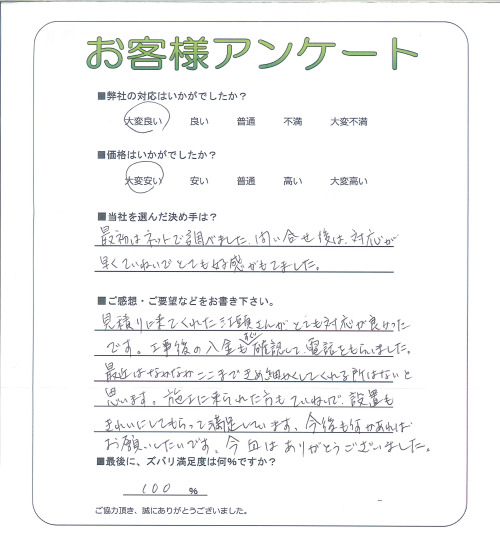 お客様アンケート
■弊社の対応はいかがでしたか？
大変良い 良い 普通 不満 大変不満
■価格はいかがでしたか？
大変安い 安い 普通 高い 大変高い
■当社を選んだ決め手は？
最初はネットで調べました。問い合せ後は、対応が
早くていねいでとても好感がもてました。
■ご感想・ご要望などをお書き下さい。
見積りに来てくれた江頭さんがとても対応が良かった
です。工事後の入金も確認して電話をもらいました。
最近はなかなかここまできめ細かくしてくれる所はないと
思います。施工に来られた方もていねいで、設置も
きれいにしてもらって満足しています。今後も何かあれば
お願いしたいです。今回はありがとうございました。
■最後に、ズバリ満足度は何%ですか？
100 %
ご協力頂き、誠にありがとうございました。